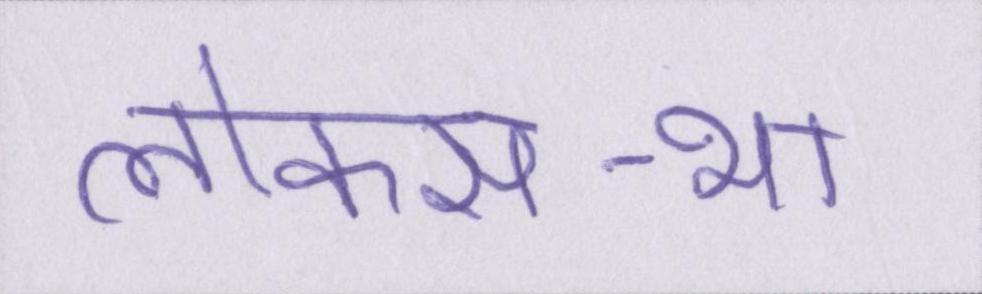 लोकसभा